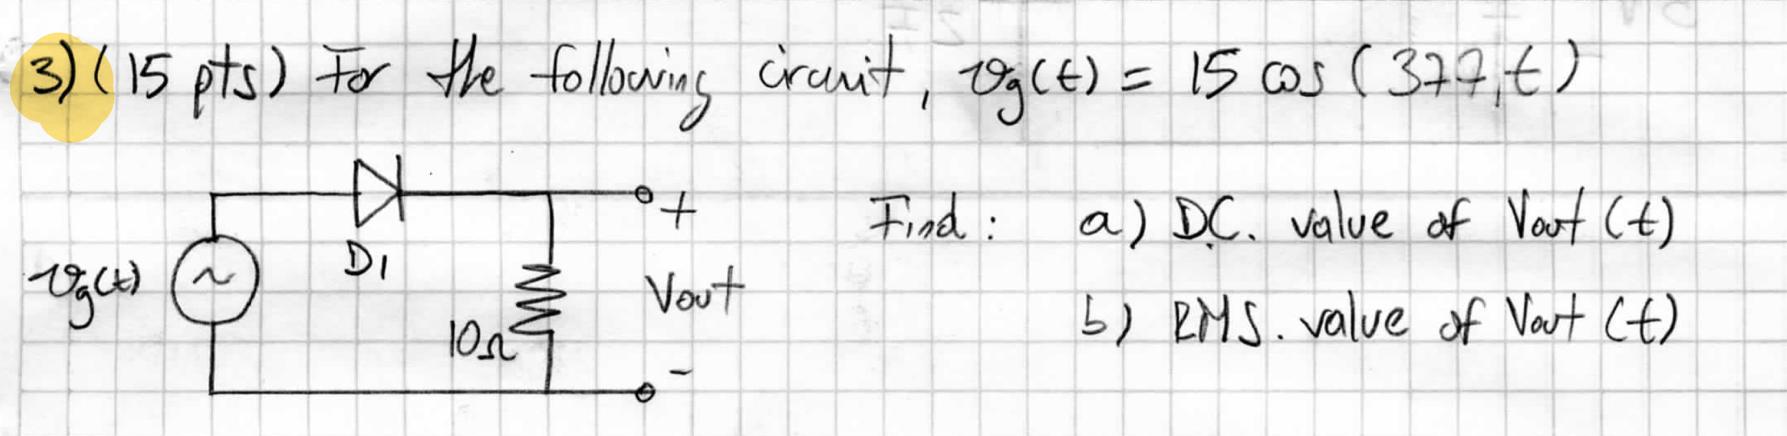 3) (15 pts) For the following circuit, vg(t) = 15 cos (377,t)
D1
vg(t)
~
10Ω
+
Vout
-
Find: a) D.C. value of Vout (t)
b) RMS. value of Vout (t)